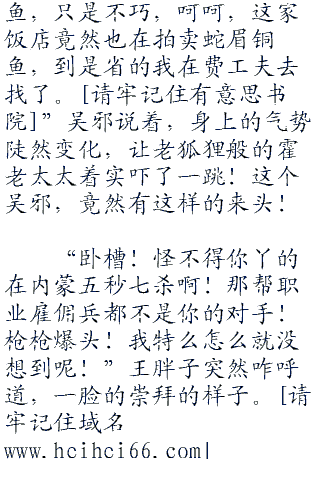 鱼，只是不巧，呵呵，这家
饭店竟然也在拍卖蛇眉铜
鱼，到是省的我在费工夫去
找了。[请牢记住有意思书
院]”吴邪说着，身上的气势
陡然变化，让老狐狸般的霍
老太太着实吓了一跳！这个
吴邪，竟然有这样的来头！
“卧槽！怪不得你丫的
在内蒙五秒七杀啊！那帮职
业雇佣兵都不是你的对手！
枪枪爆头！我特么怎么就没
想到呢！”王胖子突然咋呼
道，一脸的崇拜的样子。[请
牢记住域名
www.hcihci66.com|